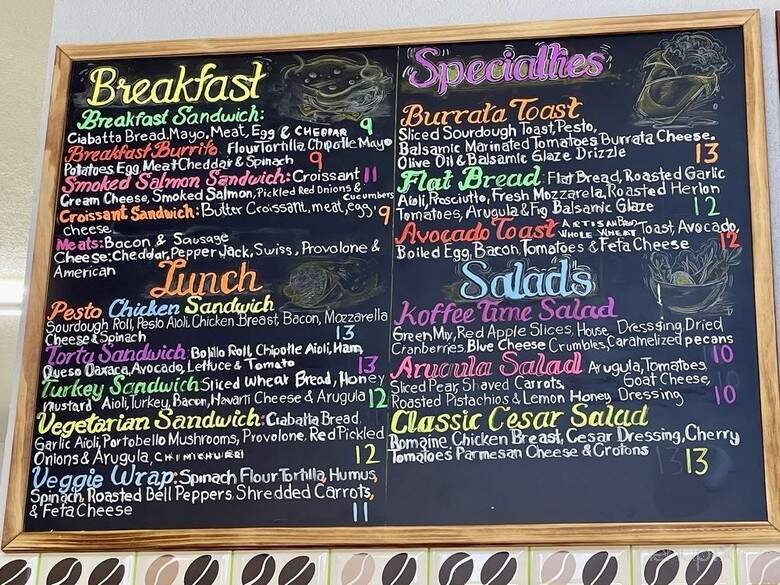 Breakfast
Breakfast Sandwich:
Ciabatta Bread, Mayo, Meat, Egg & CHEDDAR 9
Breakfast Burrito. Flour Tortilla Chipotle Mayo
Potatoes Egg Meat Cheddar & Spinach 9
Smoked Salmon Sandwich: Croissant 11
Cream Cheese, Smoked Salmon, Pickled Red Onions & Cucumbers
Croissant Sandwich: Butter Croissant, meat, egg, 9
cheese
Meats: Bacon & Sausage
Cheese: Cheddar, Pepper Jack, Swiss, Provolone &
American
Lunch
Pesto Chicken Sandwich
Sourdough Roll, Pesto Aioli, Chicken Breast, Bacon, Mozzarella
Cheese & Spinach 13
Torta Sandwich Bolillo Roll, Chipotle Aioli, Ham,
Queso Oaxaca, Avocado, Lettuce & Tomato 13
Turkey Sandwich Sliced Wheat Bread, Honey
Mustard Aioli, Turkey, Bacon, Havarti Cheese & Arugula 12
Vegetarian Sandwich: Ciabatta Bread,
Garlic Aioli, Portobello Mushrooms, Provolone, Red Pickled
Onions & Arugula, CHIMICHURRI 12
Veggie Wrap: Spinach Flour Tortilla, Humus,
Spinach, Roasted Bell Peppers Shredded Carrots,
& Feta Cheese 11
Specialties
Burrata Toast
Sliced Sourdough Toast, Pesto,
Balsamic Marinated Tomatoes Burrata Cheese,
Olive Oil & Balsamic Glaze Drizzle 13
Flat Bread: Flat Bread, Roasted Garlic
Aioli, Prosciutto, Fresh Mozzarella, Roasted Herlon
Tomatoes, Arugula & Fig Balsamic Glaze 12
Avocado Toast ARTISAN BREAD WHOLE WHEAT Toast, Avocado,
Boiled Egg, Bacon, Tomatoes & Feta Cheese 12
Salads
Koffee Time Salad
Green Mix, Red Apple Slices, House Dresssing, Dried
Cranberries, Blue Cheese Crumbles, Caramelized pecans
10
Arugula Salad Arugula, Tomatoes
Sliced Pear, Shaved Carrots, Goat Cheese,
Roasted Pistachios & Lemon Honey Dressing 10
Classic Cesar Salad
Romaine Chicken Breast, Cesar Dressing, Cherry
Tomatoes Parmesan Cheese & Crotons 13